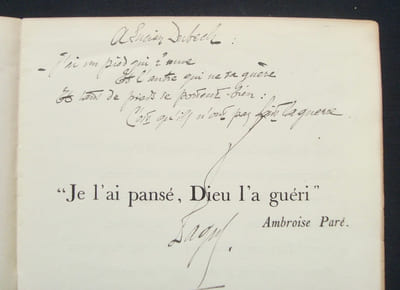 A Lucien Dubech :
– J'ai un pied qui r'mue
Et l'autre qui ne va guère
Et tant de pieds se portent bien :
C'est qu'ils n'ont pas fait la guerre.
“Je l'ai pansé, Dieu l'a guéri”
Ambroise Paré.